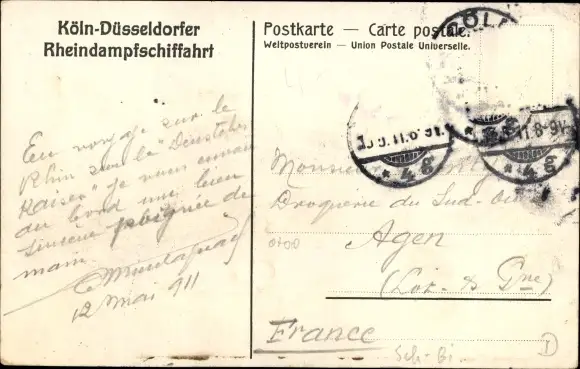 Köln-Düsseldorfer
Rheindampfschiffahrt
Postkarte — Carte postale.
Weltpostverein — Union Postale Universelle.
CÖLN
11.8-9V.
* 4g
11.8-9V.
* 4g
En voyage sur le
Rhin sur le "Deutscher
Kaiser" je vous envoie
du bord une bien
sincère poignée de
main
12 mai 911
Monsieur
Droguerie du Sud-Ouest
Agen
(Lot-&-Gne)
France
Sch-Bi
I